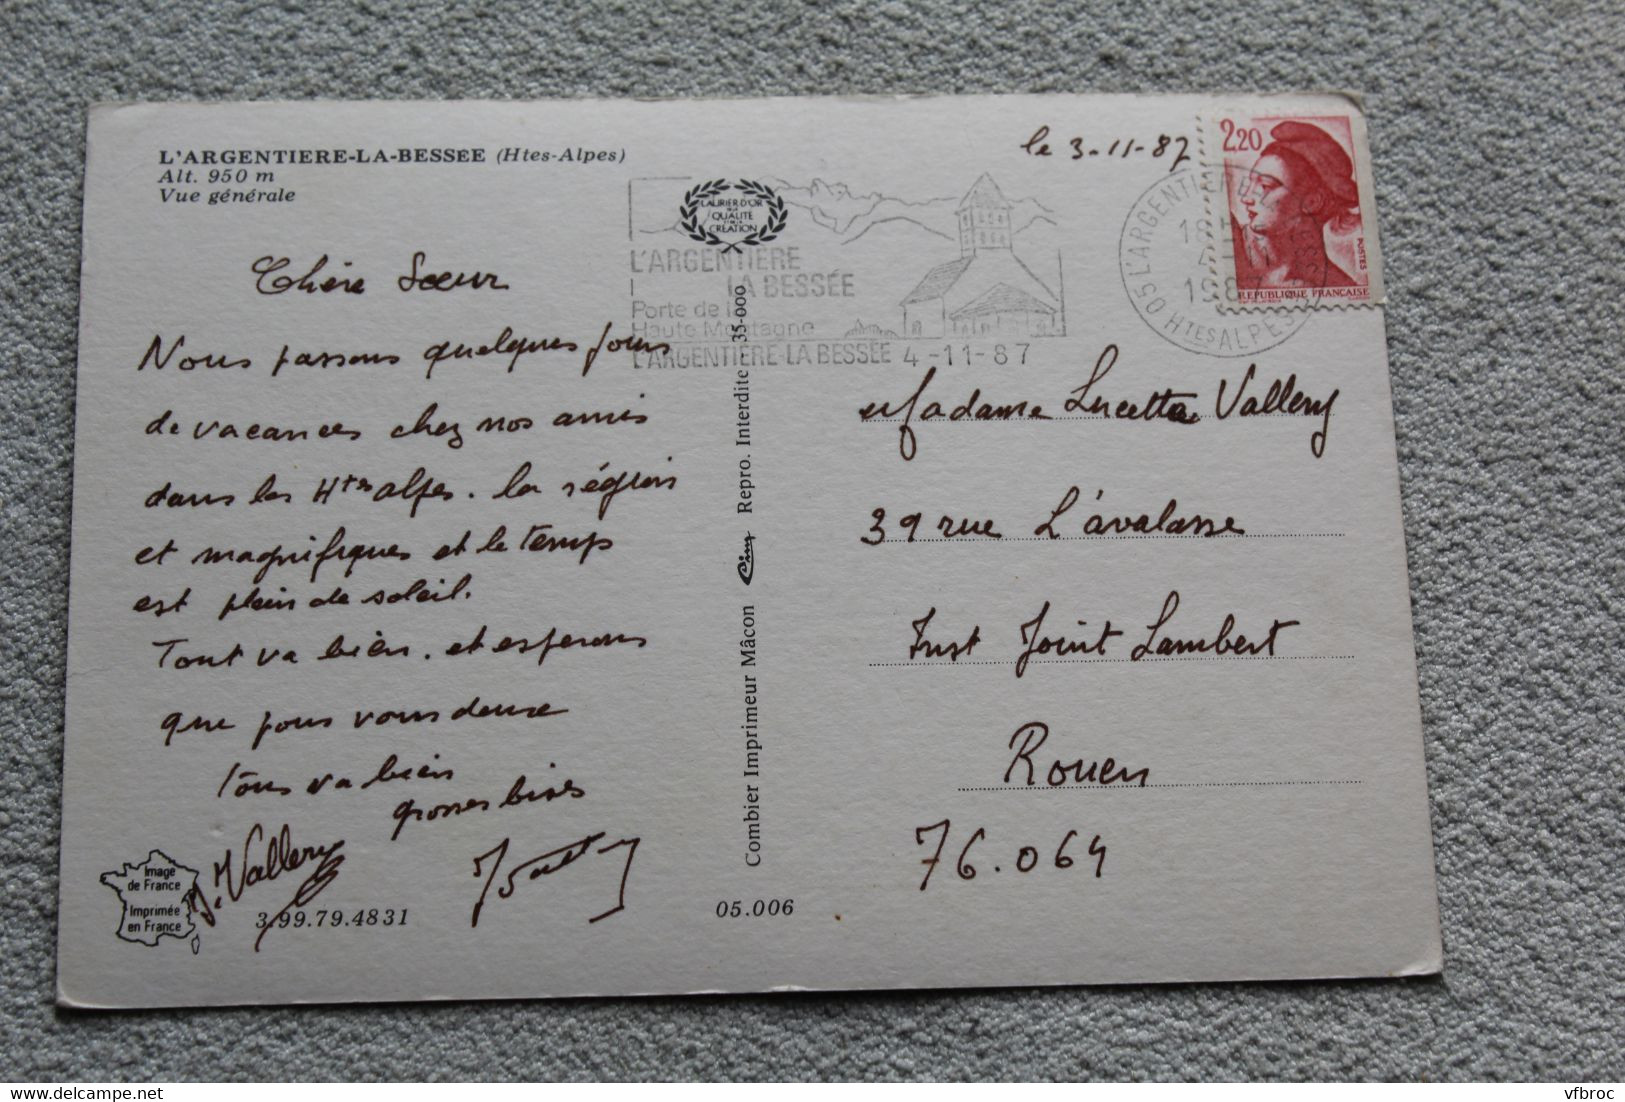 L'ARGENTIERE-LA-BESSEE (Htes-Alpes)
Alt. 950 m
Vue générale
le 3-11-87
2,20
POSTES
REPUBLIQUE FRANCAISE
LAURIER D'OR
QUALITE
CREATION
L'ARGENTIERE
LA BESSÉE
Porte de la
Haute Montagne
L'ARGENTIERE-LA BESSÉE 4-11-87
05 L'ARGENTIERE LA BESSEE
1987
HTES ALPES
Chère Sœur
Nous passons quelques jours
de vacances chez nos amis
dans les Htes alpes. la région
et magnifiques et le temps
est plein de soleil.
Tout va bien. et esperons
que pour vous deuxe
tous va bien
grosses bises
J. Vallery
Image
de France
Imprimée
en France
3.99.79.4831
05.006
Combier Imprimeur Mâcon Cim Repro. Interdite - 35-000
Madame Lucette Vallery
39 rue L'avalasse
Inst Joint Lambert
Rouen
76.064
vfbroc